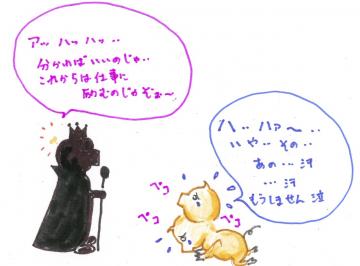 アッ ハッ ハッ‥
分かればいいのじゃ‥
これからは仕事に
励むのじゃぞぉ〜
ハ‥ ハァ〜‥
いや‥ その‥
あの…汗
…汗
もうしません 泣
ペコ
ペコ
ペコ